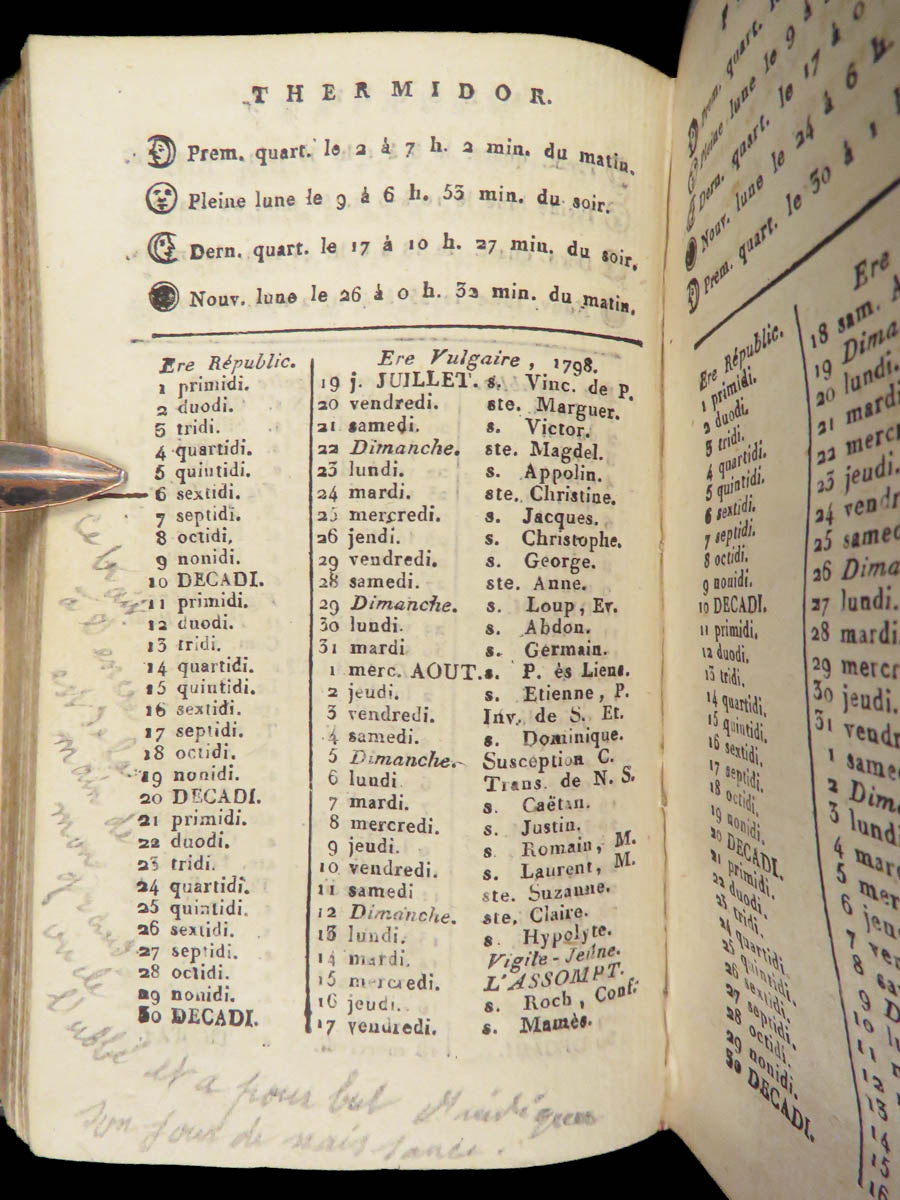 THERMIDOR.
Prem. quart. le 2 à 7 h. 2 min. du matin.
Pleine lune le 9 à 6 h. 53 min. du soir.
Dern. quart. le 17 à 10 h. 27 min. du soir.
Nouv. lune le 26 à 0 h. 32 min. du matin.
Ere Républic. Ere Vulgaire, 1798.
1 primidi. 19 j. JUILLET. s. Vinc. de P.
2 duodi. 20 vendredi. ste. Marguer.
3 tridi. 21 samedi. s. Victor.
4 quartidi. 22 Dimanche. ste. Magdel.
5 quintidi. 23 lundi. s. Appolin.
6 sextidi. 24 mardi. ste. Christine.
7 septidi. 25 mercredi. s. Jacques.
8 octidi. 26 jendi. s. Christophe.
9 nonidi. 29 vendredi. s. George.
10 DECADI. 28 samedi. ste. Anne.
11 primidi. 29 Dimanche. s. Loup, Ev.
12 duodi. 30 lundi. s. Abdon.
13 tridi. 31 mardi s. Germain.
14 quartidi. 1 merc. AOUT. s. P. ès Liens.
15 quintidi. 2 jeudi. s. Etienne, P.
16 sextidi. 3 vendredi. Inv. de S. Et.
17 septidi. 4 samedi. s. Dominique.
18 octidi. 5 Dimanche. Susception C.
19 nonidi. 6 lundi Trans. de N. S.
20 DECADI. 7 mardi. s. Caëtan.
21 primidi. 8 mercredi. s. Justin.
22 duodi. 9 jeudi. s. Romain, M.
23 tridi. 10 vendredi. s. Laurent, M.
24 quartidi. 11 samedi ste. Suzanne.
25 quintidi. 12 Dimanche. ste. Claire.
26 sextidi. 13 lundi. s. Hypolyte.
27 septidi. 14 mardi. Vigile-Jeûne.
28 octidi. 15 mercredi. L'ASSOMPT.
29 nonidi. 16 jeudi. s. Roch, Conf.
30 DECADI. 17 vendredi. s. Mamès.
Ce trait
à l'encre
est de la
main de
mon grand
oncle
l'abbé
et a pour but d'indiquer
son jour de naissance.
Prem. quart.
Pleine lune le 9 à
Dern. quart. le 17 à
Nouv. lune le 24 à 6 h.
Prem. quart. le 30 à 1
Ere Républic. Ere
1 primidi. 18 sam.
2 duodi. 19 Dima
3 tridi. 20 lundi.
4 quartidi. 21 mardi
5 quintidi. 22 merc
6 sextidi. 23 jeudi.
7 septidi. 24 vend
8 octidi. 25 same
9 nonidi. 26 Dima
10 DECADI. 27 lundi.
11 primidi. 28 mardi
12 duodi. 29 merc
13 tridi. 30 jeudi.
14 quartidi. 31 vendr
15 quintidi. 1 same
16 sextidi. 2 Dim
17 septidi. 3 lund
18 octidi. 4 mar
19 nonidi. 5 mer
20 DECADI. 6 jeu
21 primidi. 7 ve
22 duodi. 8 sa
23 tridi. 9
24 quartidi. 10
25 quintidi. 11
26 sextidi. 12
27 septidi. 13
28 octidi. 14
29 nonidi. 15
30 DECADI. 16